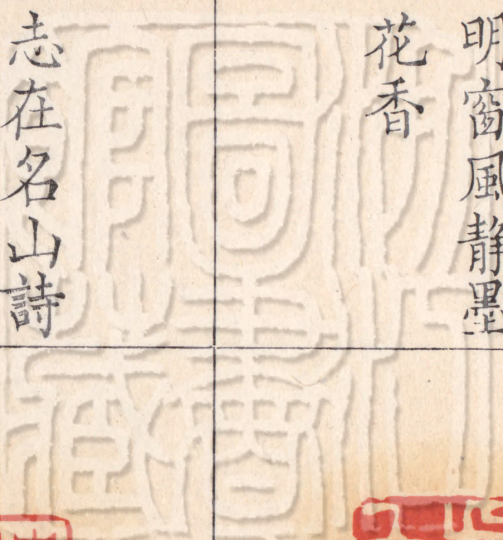 明窗風静墨
花香
志在名山詩